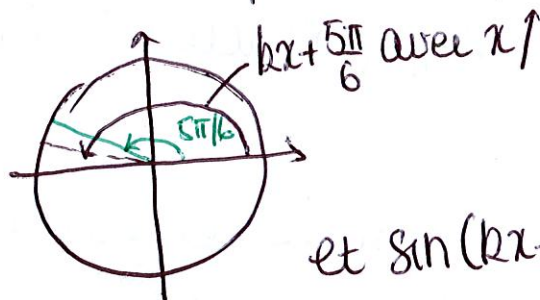 kx + 5π/6 avec x ↑
5π/6
et sin(kx